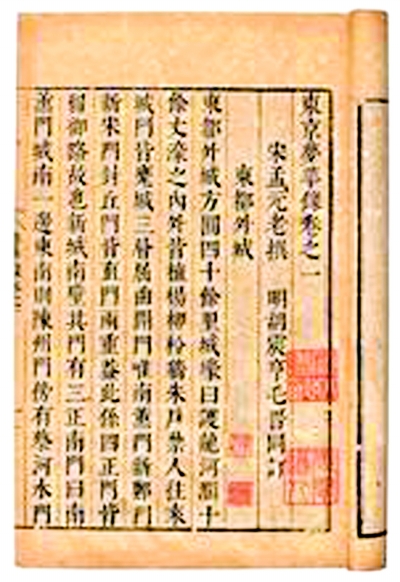 東京夢華錄卷之一
宋孟元老撰 明胡震亨毛晉同訂
東都外城
東都外城方圓四十餘里城濠曰護龍河濶十
餘丈濠之內外皆植楊柳粉牆朱戶禁人往來
城門皆甕城三層屈曲開門唯南薰門新鄭門
新宋門封丘門皆直門兩重蓋此係四正門皆
留御路故也新城南壁其門有三正南門曰南
薰門城南一邊東南則陳州門傍有蔡河水門